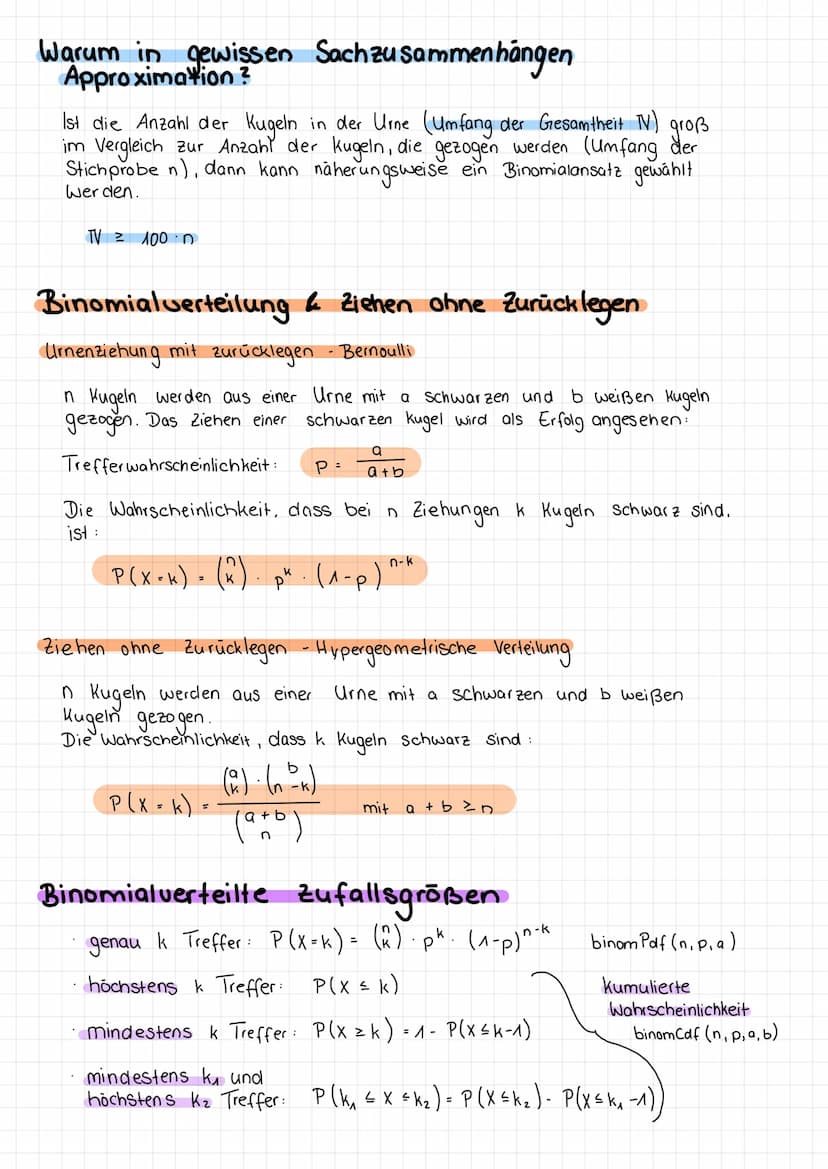 Warum in gewissen Sachzusammenhängen
Approximation?
Ist die Anzahl der Kugeln in der Urne (Umfang der Gesamtheit N) groß
im Vergleich zur Anzahl der Kugeln, die gezogen werden (Umfang der
Stichprobe n), dann kann näherungsweise ein Binomialansatz gewählt
werden.
N ≥ 100 · n
Binomialverteilung & Ziehen ohne Zurücklegen
Urnenziehung mit zurücklegen - Bernoulli
n Kugeln werden aus einer Urne mit a schwarzen und b weißen Kugeln
gezogen. Das Ziehen einer schwarzen Kugel wird als Erfolg angesehen:
Trefferwahrscheinlichkeit: p = a / (a+b)
Die Wahrscheinlichkeit, dass bei n Ziehungen k Kugeln schwarz sind,
ist:
P(X=k) = (n über k) · p^k · (1-p)^(n-k)
Ziehen ohne Zurücklegen - Hypergeometrische Verteilung
n Kugeln werden aus einer Urne mit a schwarzen und b weißen
Kugeln gezogen.
Die Wahrscheinlichkeit, dass k Kugeln schwarz sind:
P(X=k) = (a über k) · (b über n-k) / (a+b über n) mit a + b ≥ n
Binomialverteilte Zufallsgrößen
· genau k Treffer: P(X=k) = (n über k) · p^k · (1-p)^(n-k) binomPdf(n,p,a)
· höchstens k Treffer: P(X ≤ k) kumulierte
Wahrscheinlichkeit
· mindestens k Treffer: P(X ≥ k) = 1 - P(X ≤ k-1) binomCdf(n,p,a,b)
· mindestens k₁ und
höchstens k₂ Treffer: P(k₁ ≤ X ≤ k₂) = P(X ≤ k₂) - P(X ≤ k₁ -1)